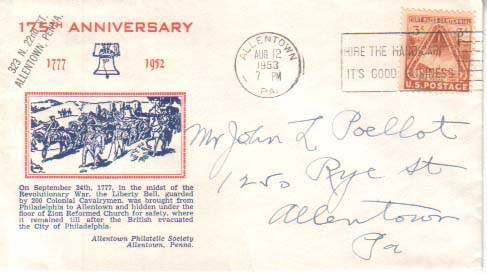 175TH ANNIVERSARY
323 N. 22nd ST.
ALLENTOWN, PENNA.
1777
1952
On September 24th, 1777, in the midst of the
Revolutionary War, the Liberty Bell, guarded
by 200 Colonial Cavalrymen, was brought from
Philadelphia to Allentown and hidden under the
floor of Zion Reformed Church for safety, where
it remained till after the British evacuated
the City of Philadelphia.
Allentown Philatelic Society
Allentown, Penna.
ALLENTOWN
AUG 12
1953
7 PM
PA.
HIRE THE HANDICAP
IT'S GOOD BUSINESS
3¢
U.S. POSTAGE
Mr John L Poellot
1250 Rye St
Allentown
Pa